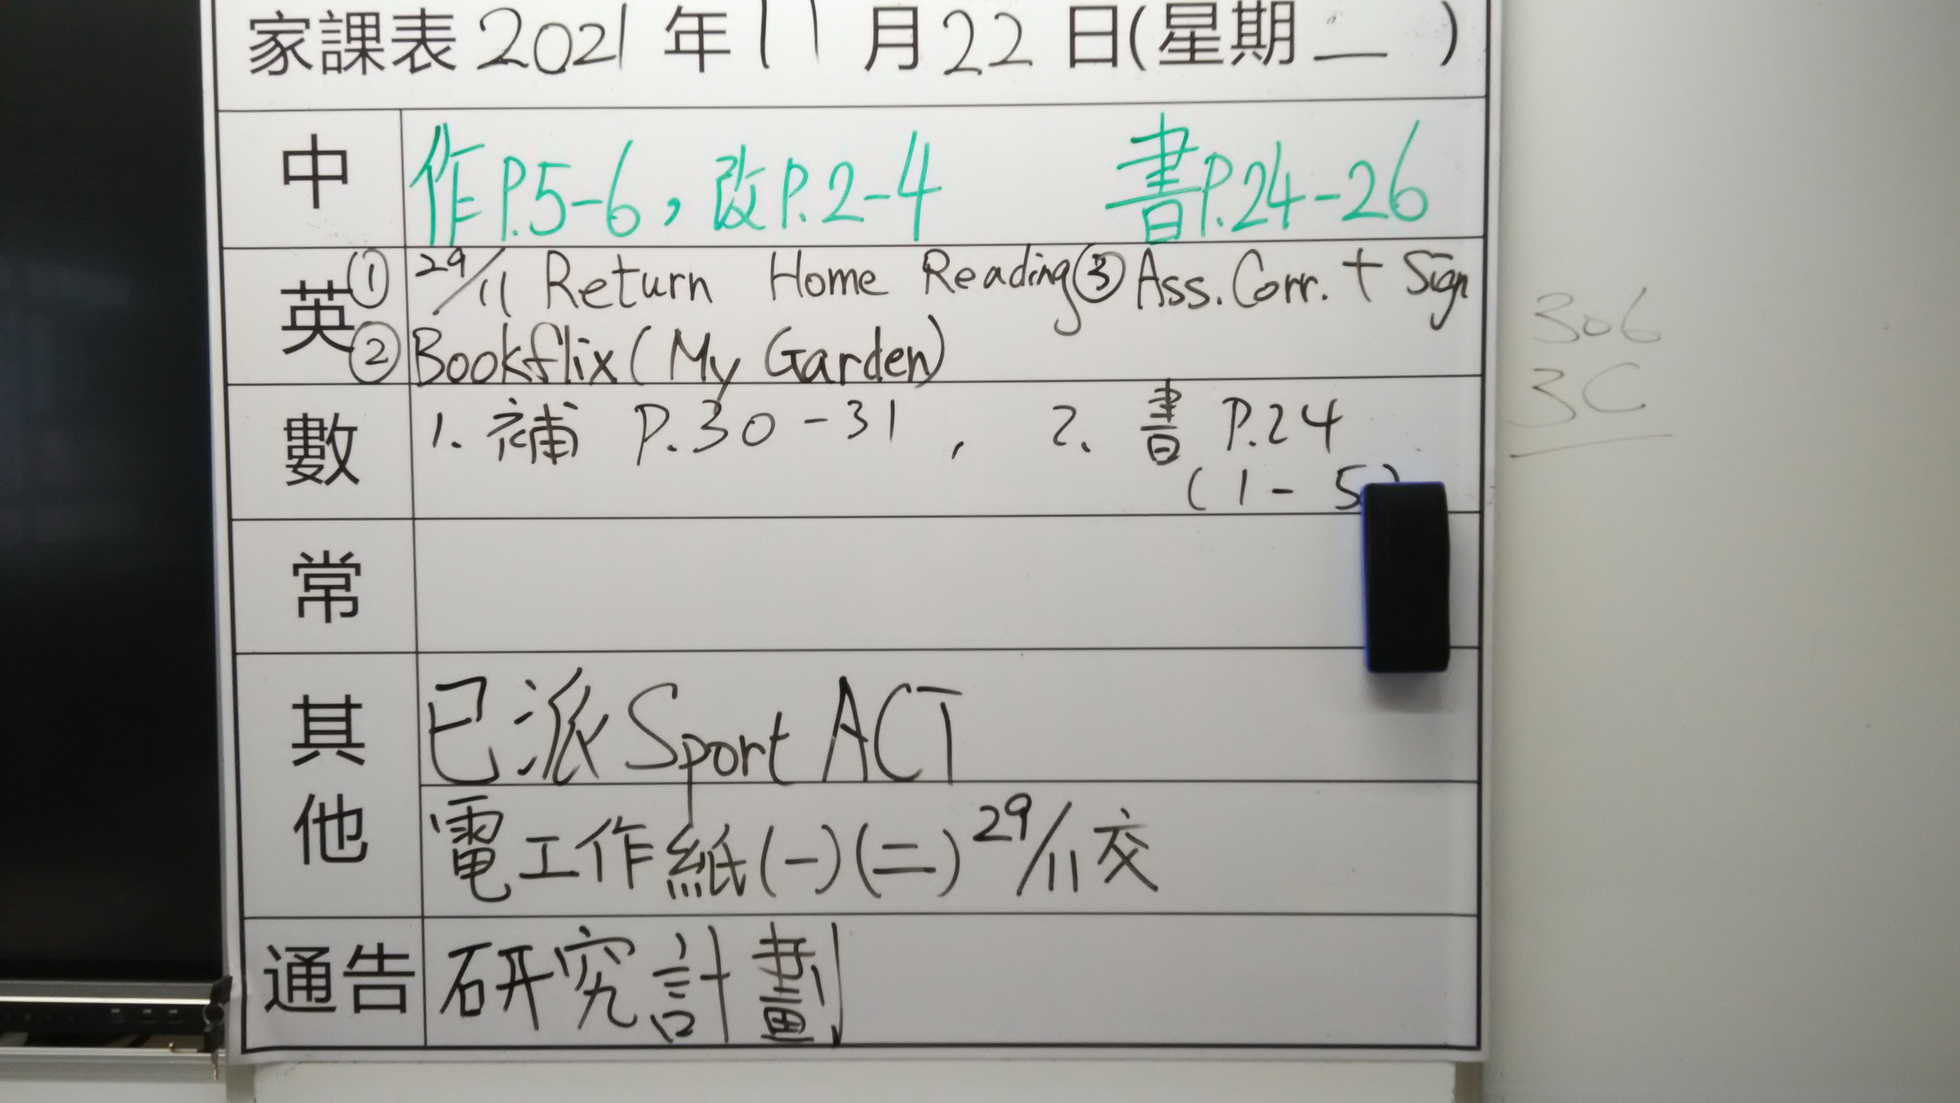 家課表 2021 年 11 月 22 日(星期 一 )
中 作P.5-6，改P.2-4 書P.24-26
英 ① 29/11 Return Home Reading ③ Ass. Corr. + Sign
② Bookflix (My Garden)
數 1. 補 P.30-31 , 2. 書 P.24
(1-5)
常
其他 已派 Sport ACT
電工作紙(一)(二) 29/11交
通告 研究計劃
306
3C